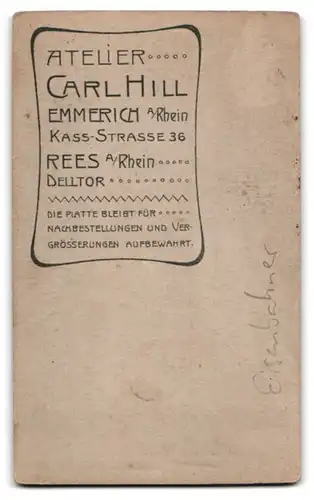 ATELIER
CARL HILL
EMMERICH A/Rhein
KASS-STRASSE 36
REES A/Rhein
DELLTOR
DIE PLATTE BLEIBT FÜR
NACHBESTELLUNGEN UND VER-
GRÖSSERUNGEN AUFBEWAHRT.
Eisenbahner